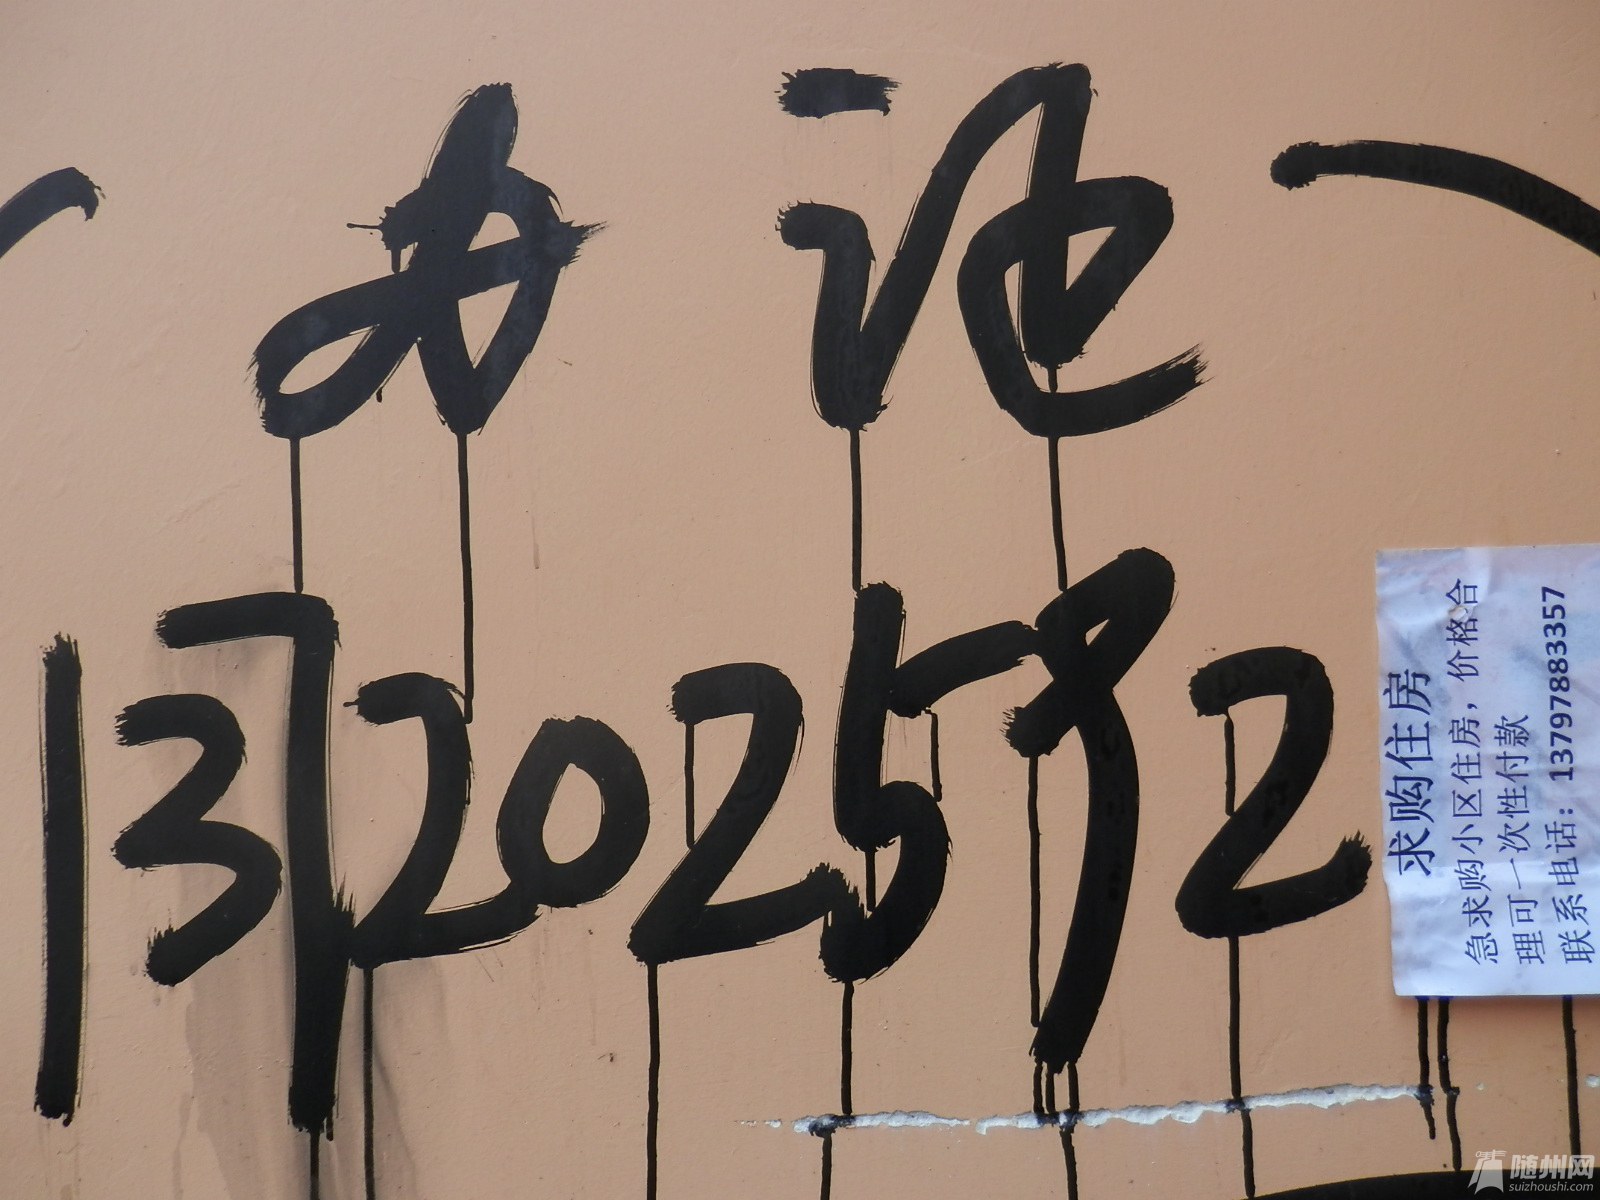 办证
13720257 2
求购住房
急求购小区住房，价格合
理可一次性付款
联系电话：13797883357
随州网
suizhoushi.com